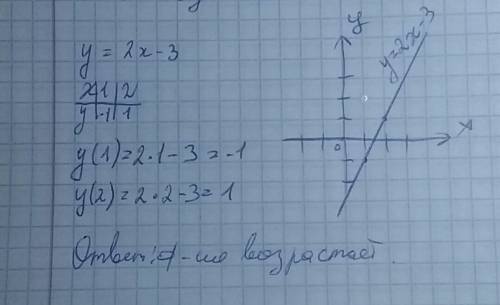 y = 2x - 3
x | 1 | 2
y | -1 | 1
y(1) = 2·1 - 3 = -1
y(2) = 2·2 - 3 = 1
Ответ: ф-ия возрастает.
y
y=2x-3
0
x